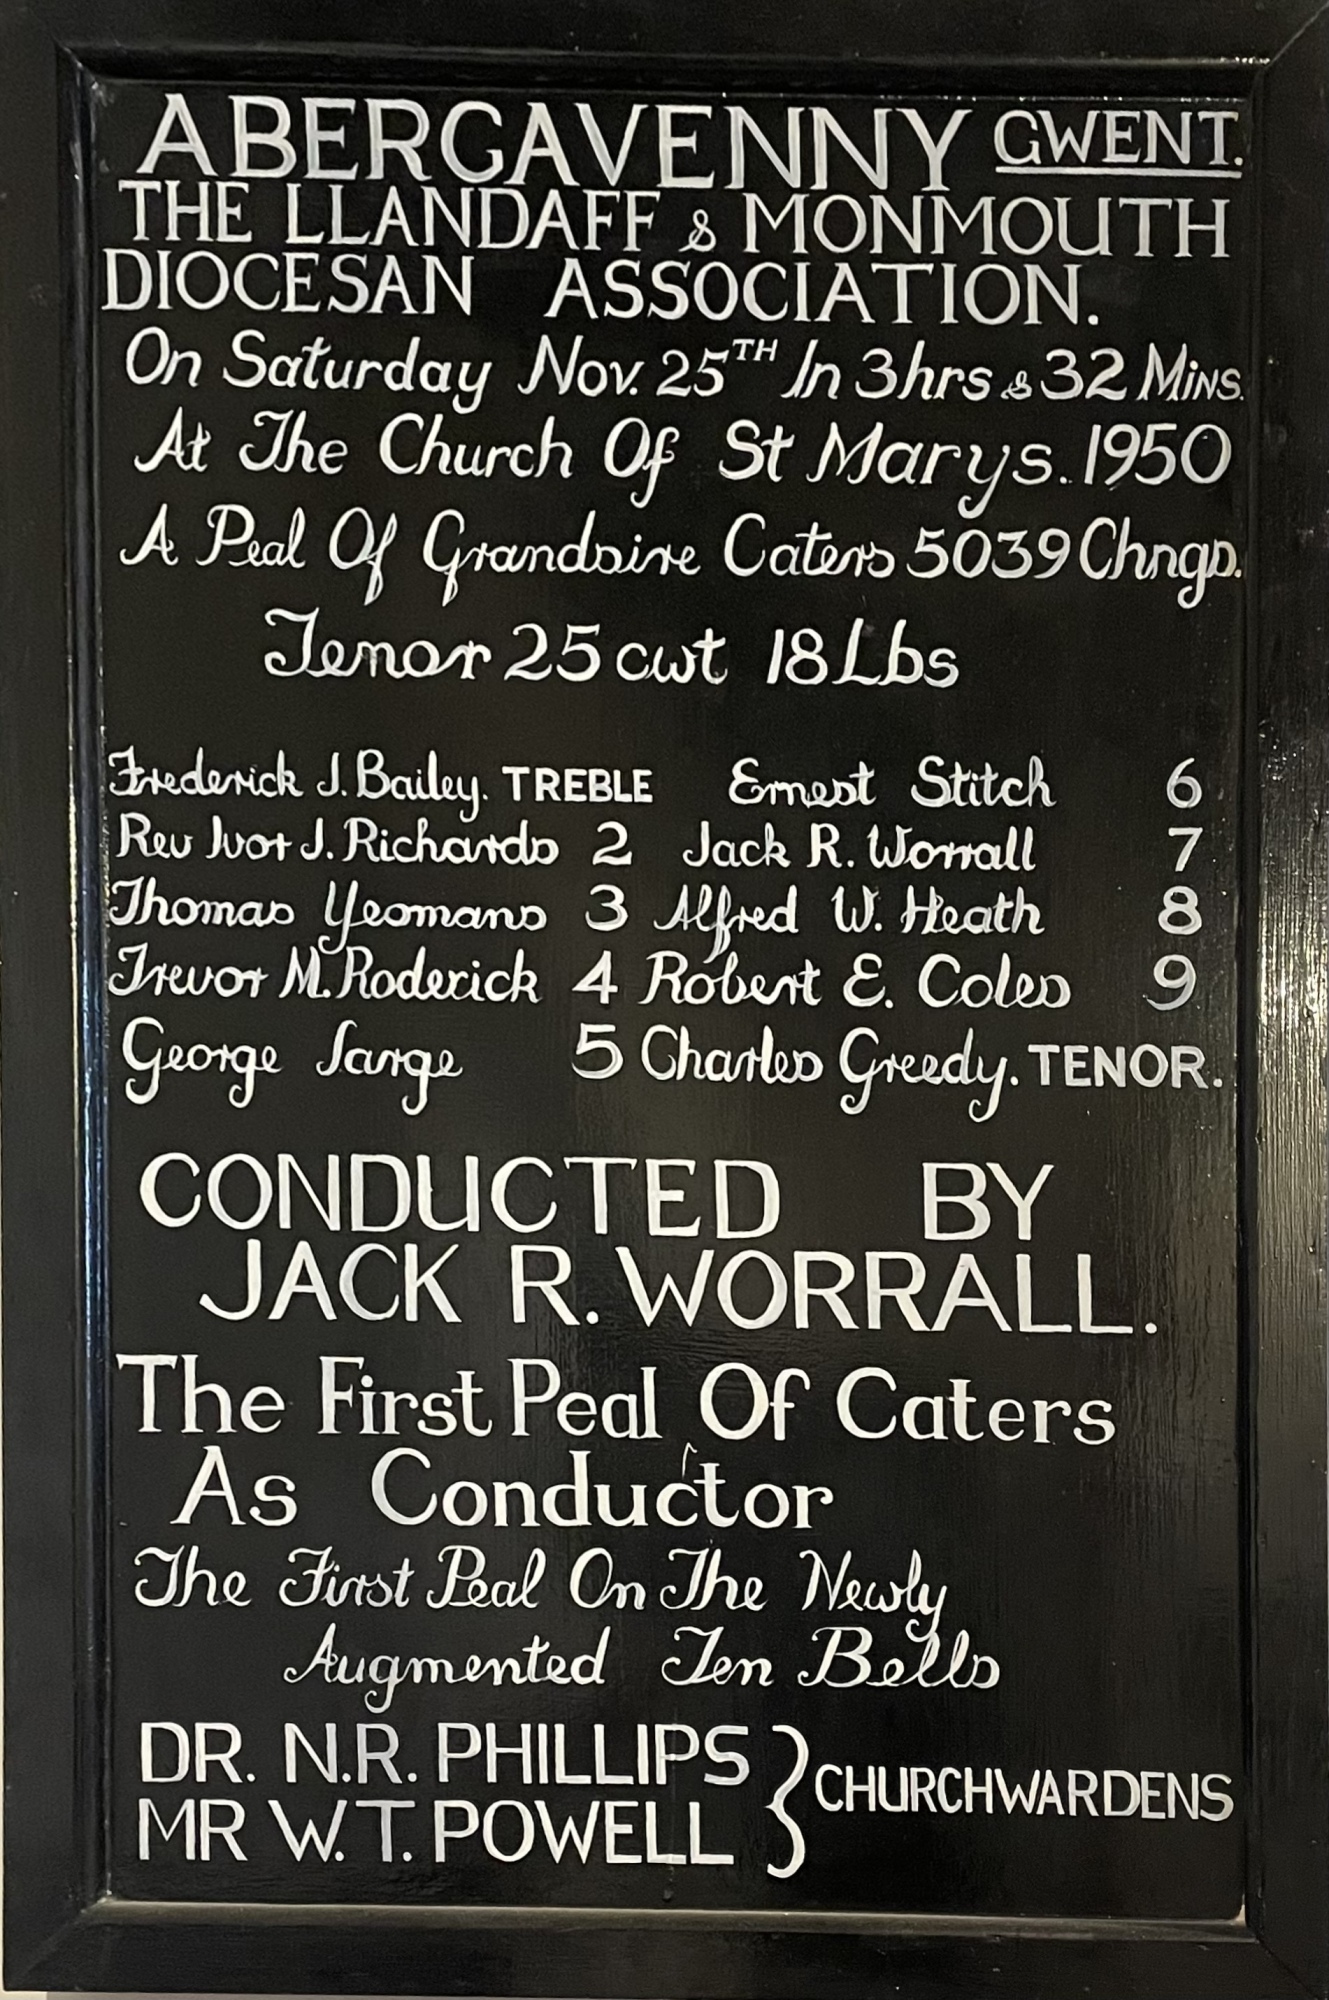 ABERGAVENNY GWENT.
THE LLANDAFF & MONMOUTH
DIOCESAN ASSOCIATION.
On Saturday Nov. 25TH In 3hrs & 32 Mins.
At The Church Of St Marys. 1950
A Peal Of Grandsire Caters 5039 Chngs.
Tenor 25 cwt 18 Lbs
Frederick J. Bailey. TREBLE Ernest Stitch 6
Rev Ivor J. Richards 2 Jack R. Worrall 7
Thomas Yeomans 3 Alfred W. Heath 8
Trevor M. Roderick 4 Robert E. Coles 9
George Large 5 Charles Greedy. TENOR.
CONDUCTED BY
JACK R. WORRALL.
The First Peal Of Caters
As Conductor
The First Peal On The Newly
Augmented Ten Bells
DR. N.R. PHILLIPS
MR W.T. POWELL } CHURCHWARDENS